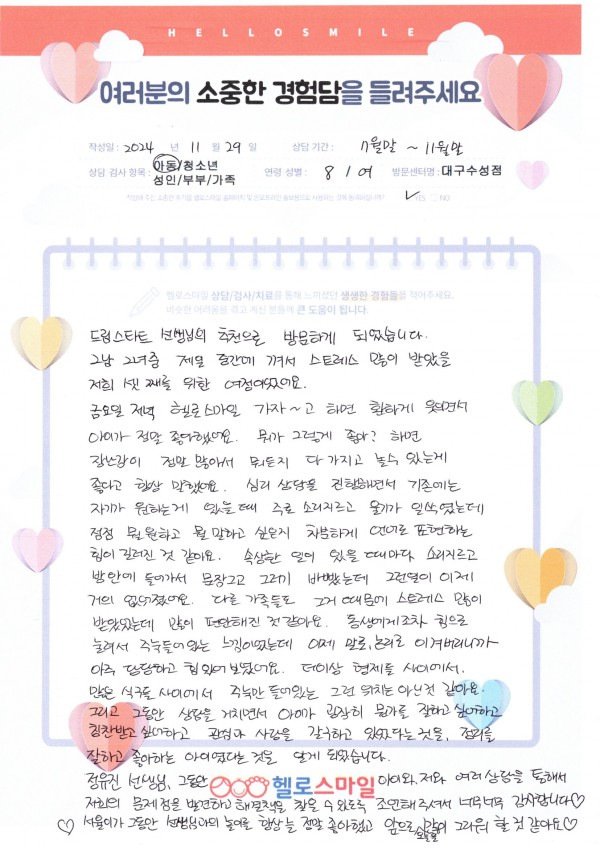 HELLOSMILE
여러분의 소중한 경험담을 들려주세요
작성일 : 2024 년 11 월 29 일 상담 기간 : 7월말 ~ 11월말
상담 검사 항목 : 아동/청소년 성인/부부/가족 연령 성별 : 8 / 여 방문센터명 : 대구수성점
YES NO
헬로스마일 상담/검사/치료를 통해 느끼셨던 생생한 경험들을 적어주세요.
비슷한 어려움을 겪고 계신 분들께 큰 도움이 됩니다.
드림스타트 선생님의 추천으로 방문하게 되었습니다.
그남 그녀중 제일 중간에 껴서 스트레스 많이 받았을
저희 셋째를 위한 여정이었어요.
금요일 저녁 헬로스마일 가자~고 하면 환하게 웃으면서
아이가 정말 좋아했어요. 뭐가 그렇게 좋아? 하면
장난감이 정말 많아서 뭐든지 다 가지고 놀수 있는게
좋다고 항상 말했어요. 심리 상담을 진행하면서 기존에는
자기가 원하는게 있을때 주로 소리지르고 울기가 일쑤였는데
점점 뭘 원하고 뭘 말하고 싶은지 차분하게 언어로 표현하는
힘이 길러진 것 같아요. 속상한 일이 있을 때마다 소리지르고
방안에 들어가서 문잠그고 그러기 바빴는데 그런일이 이제
거의 없어졌어요. 다른 가족들도 그거 때문에 스트레스 많이
받았었는데 많이 편안해진 것 같아요. 동생에게조차 힘으로
눌려서 주눅들어있는 느낌이었는데 이제 말로, 논리로 이겨버리니까
아주 당당하고 힘있어 보였어요. 더이상 형제들 사이에서,
많은 식구들 사이에서 주눅만 들어있는 그런 위치는 아닌것 같아요.
그리고 그동안 상담을 거치면서 아이가 굉장히 뭔가를 잘하고 싶어하고
칭찬받고 싶어하고 관심과 사랑을 갈구하고 있었다는 것을, 정리를
잘하고 좋아하는 아이였다는 것을 알게 되었습니다.
정유진 선생님, 그동안 아이와 저와 여러 상담을 통해서
헬로스마일
저희의 문제점을 발견하고 해결책을 찾을 수 있도록 조언해주셔서 너무너무 감사합니다♡
♡ 서윤이가 그동안 선생님과의 놀이를 항상 정말 좋아했고 앞으로 많이 그리워 할 것 같아요♡